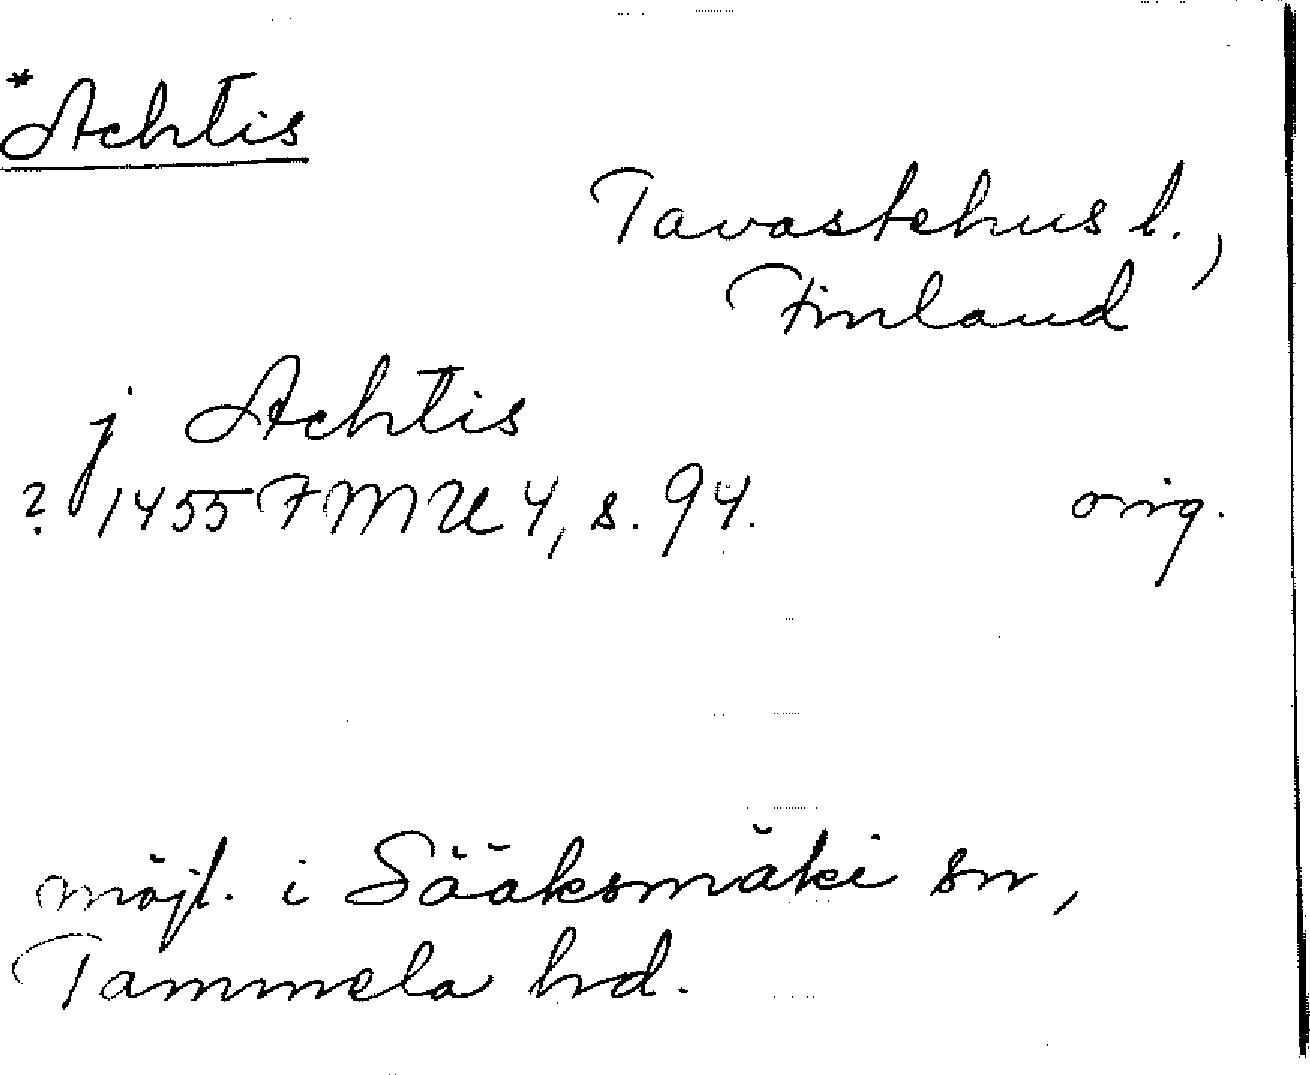 *Achtis
Tavastehus l.,
Finland
j Achtis
? 1455 FMU 4, s. 94. orig.
möjl. i Sääksmäki sn,
Tammela hd.